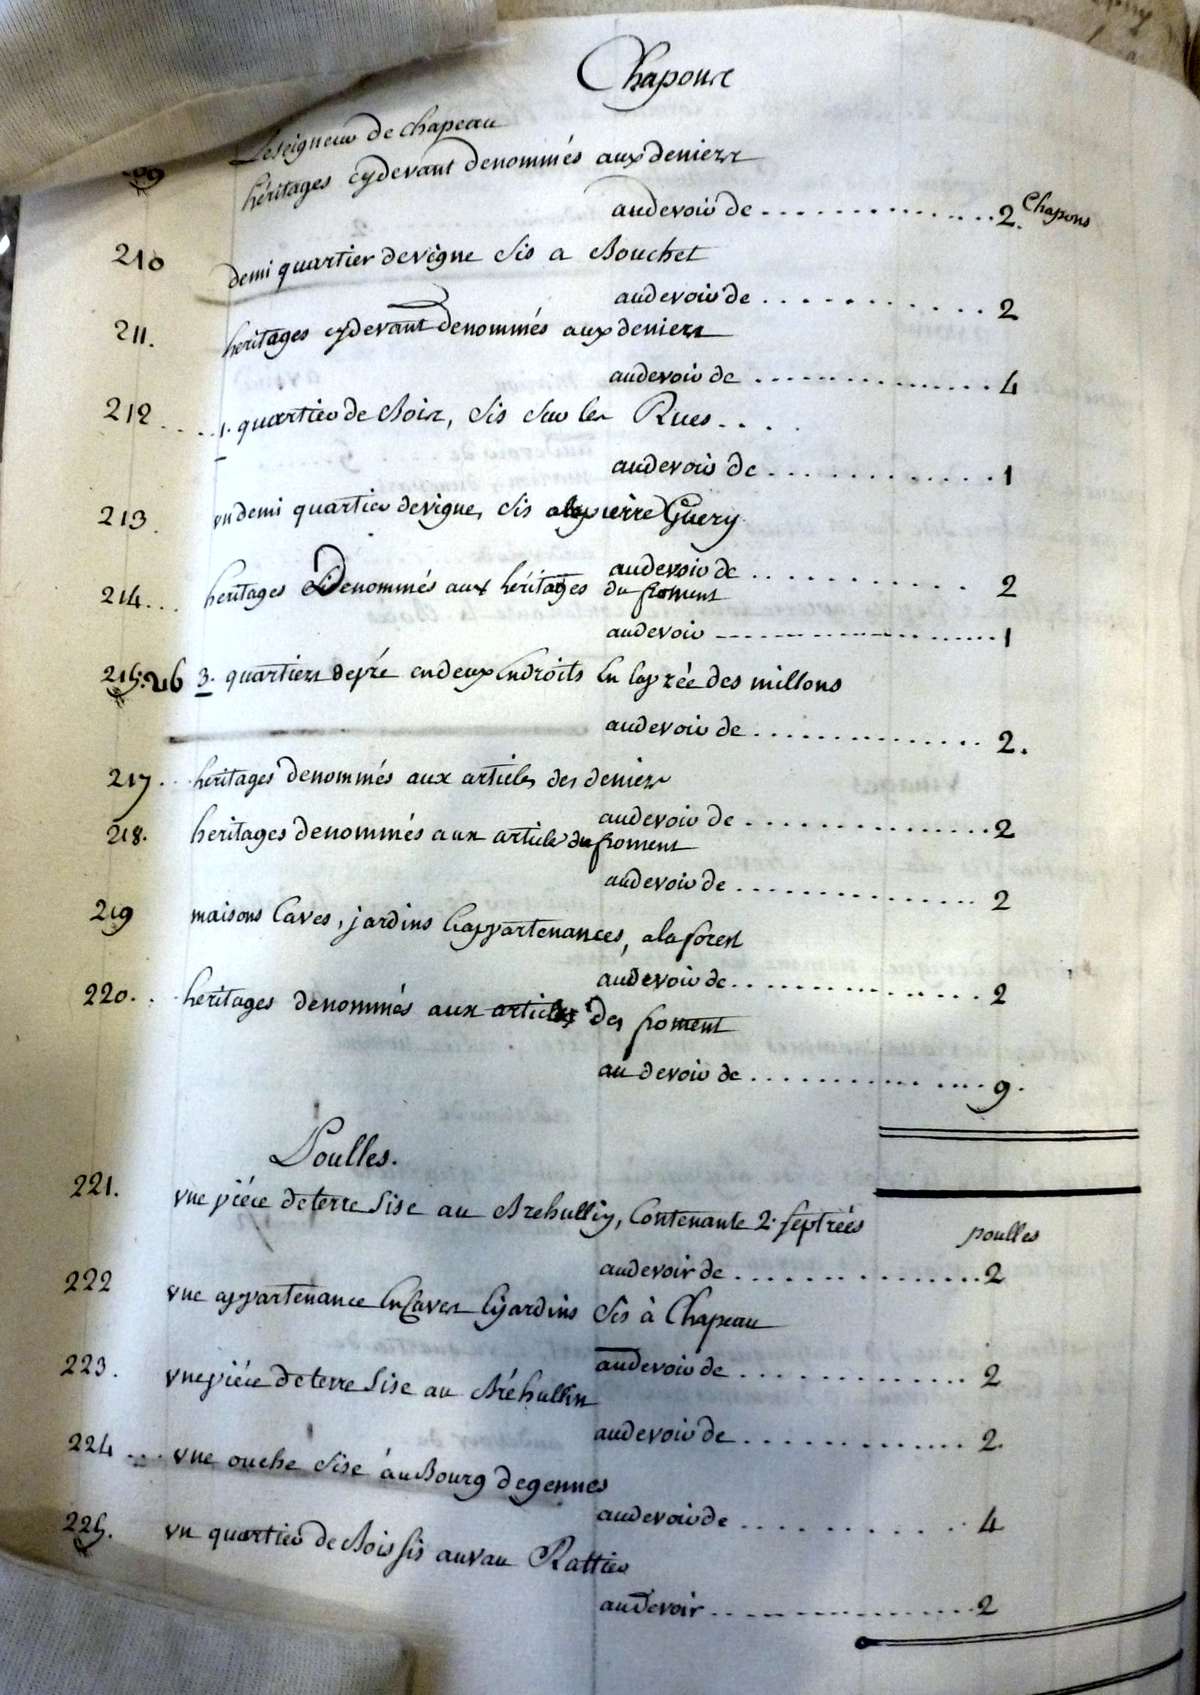 Chapons
Le seigneur de chapeau
209 héritages cydevant denommés aux deniers
audevoir de .............. 2. Chapons
210 demi quartier de vigne sis a Bouchet
audevoir de ............ 2
211. heritages cydevant denommés aux deniers
audevoir de ............ 4
212 .... 1. quartier de Bois, sis sur les Rues....
audevoir de ............ 1
213. un demi quartier de vigne, sis pierre Guery
audevoir de ............ 2
214... heritages Denommés aux héritages du froment
audevoir ................ 1
215. 216 3. quartiers de pré en deux Endroits En la prée des millons
audevoir de ............ 2.
217... heritages denommés aux articles des deniers
audevoir de ............ 2
218. heritages denommés aux article du froment
audevoir de ............ 2
219 maisons Caves, jardins Eappartenances, a la forest
audevoir de ............ 2
220... heritages denommés aux articles des froment
au devoir de ............ 9.
Poulles.
221. une piéce de terre sise au Brehullin, Contenante 2. septrées
poulles
audevoir de ............ 2
222 une appartenance En Caves Ejardins sis à Chapeau
audevoir de ............ 2
223. une piéce de terre sise au Bréhullin
audevoir de ............ 2.
224.... une ouche sise au Bourg de gennes
audevoir de ............ 4
225. un quartier de Bois sis au vau Rattier
audevoir ................ 2